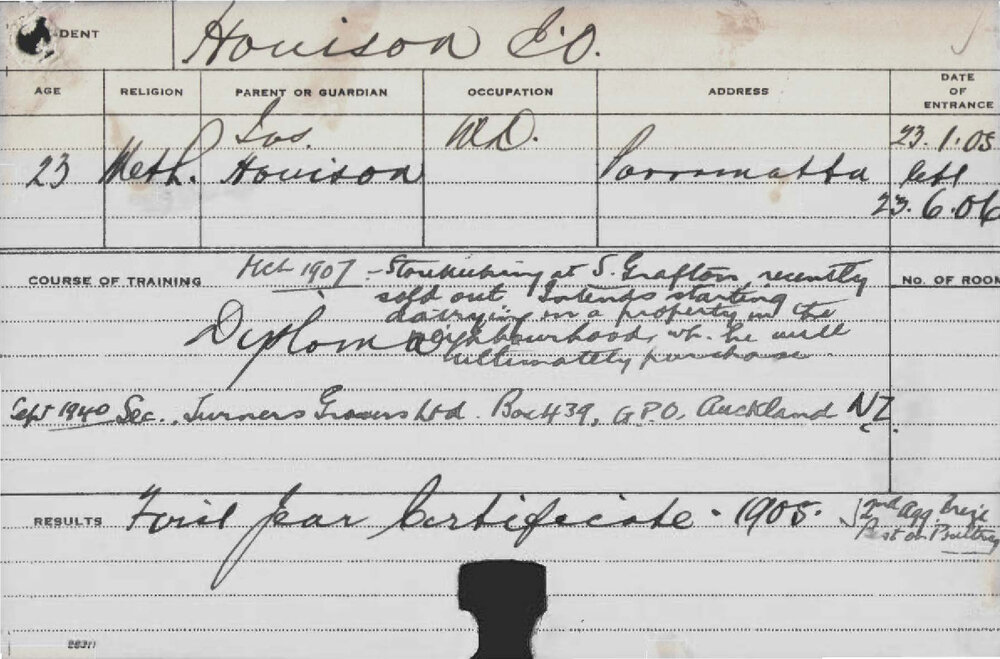 DENT Howison E.O.
AGE RELIGION PARENT OR GUARDIAN OCCUPATION ADDRESS DATE OF ENTRANCE
Jas. M.D. 23.1.05
23 Meth. Howison Parramatta left
23.6.06
COURSE OF TRAINING 1907 - Storekeeping at S. Grafton, recently NO. OF ROOM
sold out. Intends starting
dairying on a property in the
Diploma neighbourhood, wh. he will
ultimately purchase.
Sept 1940 Sec., Turners Growers Ltd. Box 439, G.P.O. Auckland NZ.
RESULTS First Year Certificate. 1905. 2nd Agg. Prize
Best on Poultry